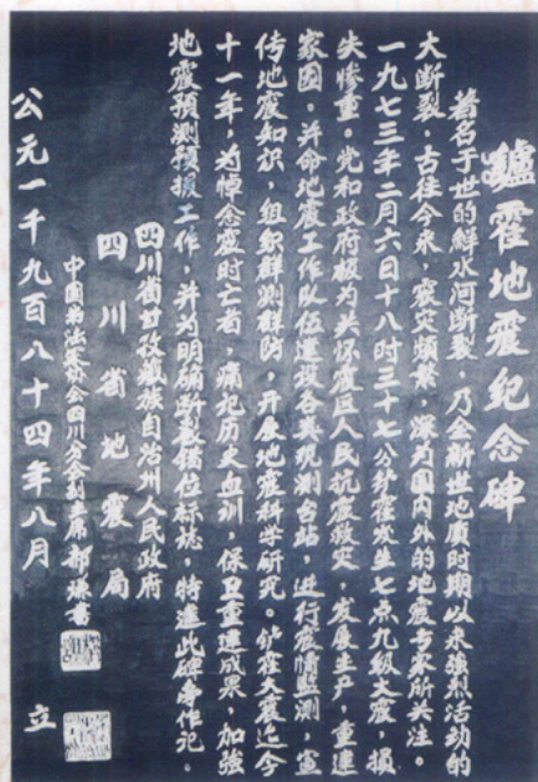 鑪霍地震纪念碑
著名于世的鲜水河断裂，乃全新世地质时期以来强烈活动的
大断裂。古往今来，震灾频繁，深为国内外的地震专家所关注。
一九七三年二月六日十八时三十七分炉霍发生七点九级大震，损
失惨重。党和政府极为关怀震区人民抗震救灾，发展生产，重建
家园。并命地震工作队伍建设各类观测台站，进行震情监测，宣
传地震知识，组织群测群防，开展地震科学研究。炉霍大震迄今
十一年，为悼念震时亡者，痛记历史血训，保卫重建成果，加强
地震预测预报工作，并为明确断裂错位标誌，特建此碑专作记。
四川省甘孜藏族自治州人民政府
四川省地震局
中国书法家协会四川分会副主席 郁谦书
公元一千九百八十四年八月 立